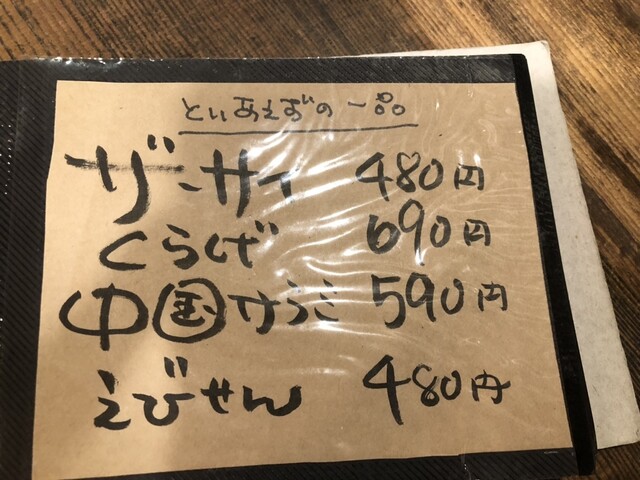 とりあえずの一品
ザーサイ 480円
くらげ 690円
中国けうこ 590円
えびせん 480円